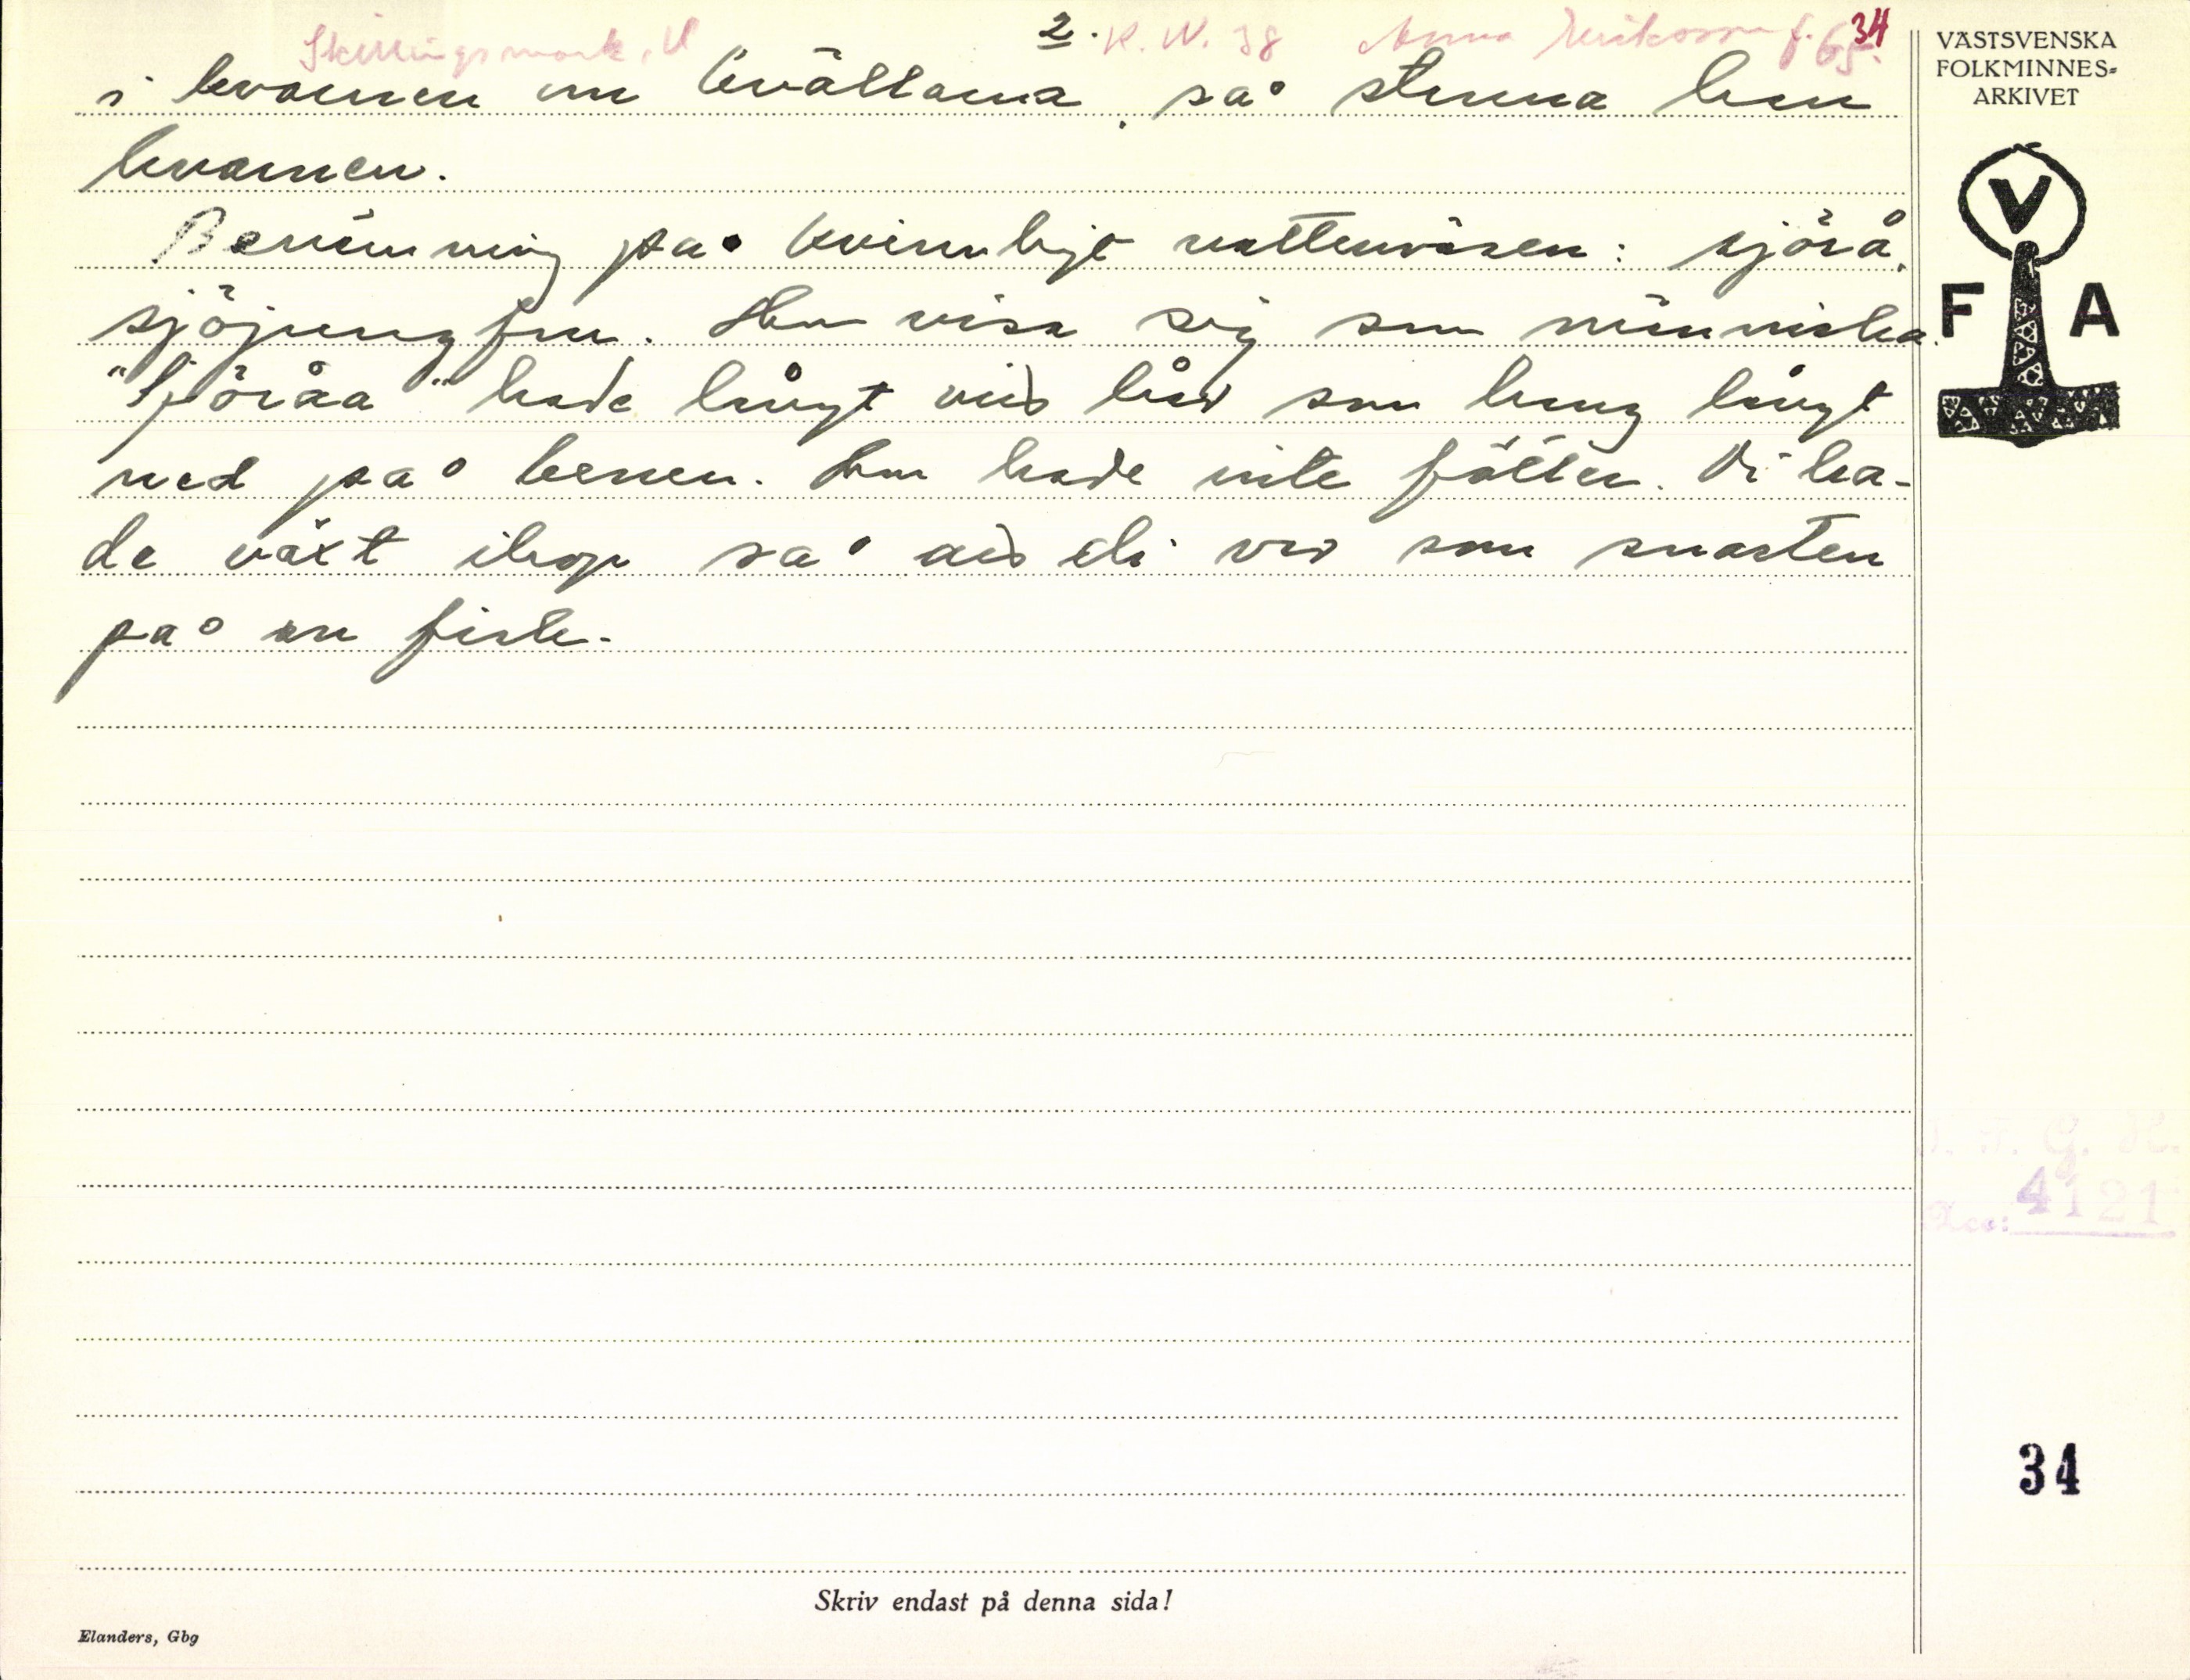 Skillingsmark, V 2. K. W. 38 Anna Eriksson f. 65. 34
i kvarnen om kvällarna, så stanna han
kvarnen.
Benämning på kvinnligt vattenväsen: sjörå,
sjöjungfru. Hon visa sig som människa.
"Sjöråa" hade långt vid hår som hang långt
ned på benen. Hon hade inte fötter. Di ha-
de växt ihop så di som snarten
på en fisk.
Skriv endast på denna sida!
Elanders, Gbg
VÄSTSVENSKA
FOLKMINNES-
ARKIVET
V
F A
G. H.
Acc: 4121
34